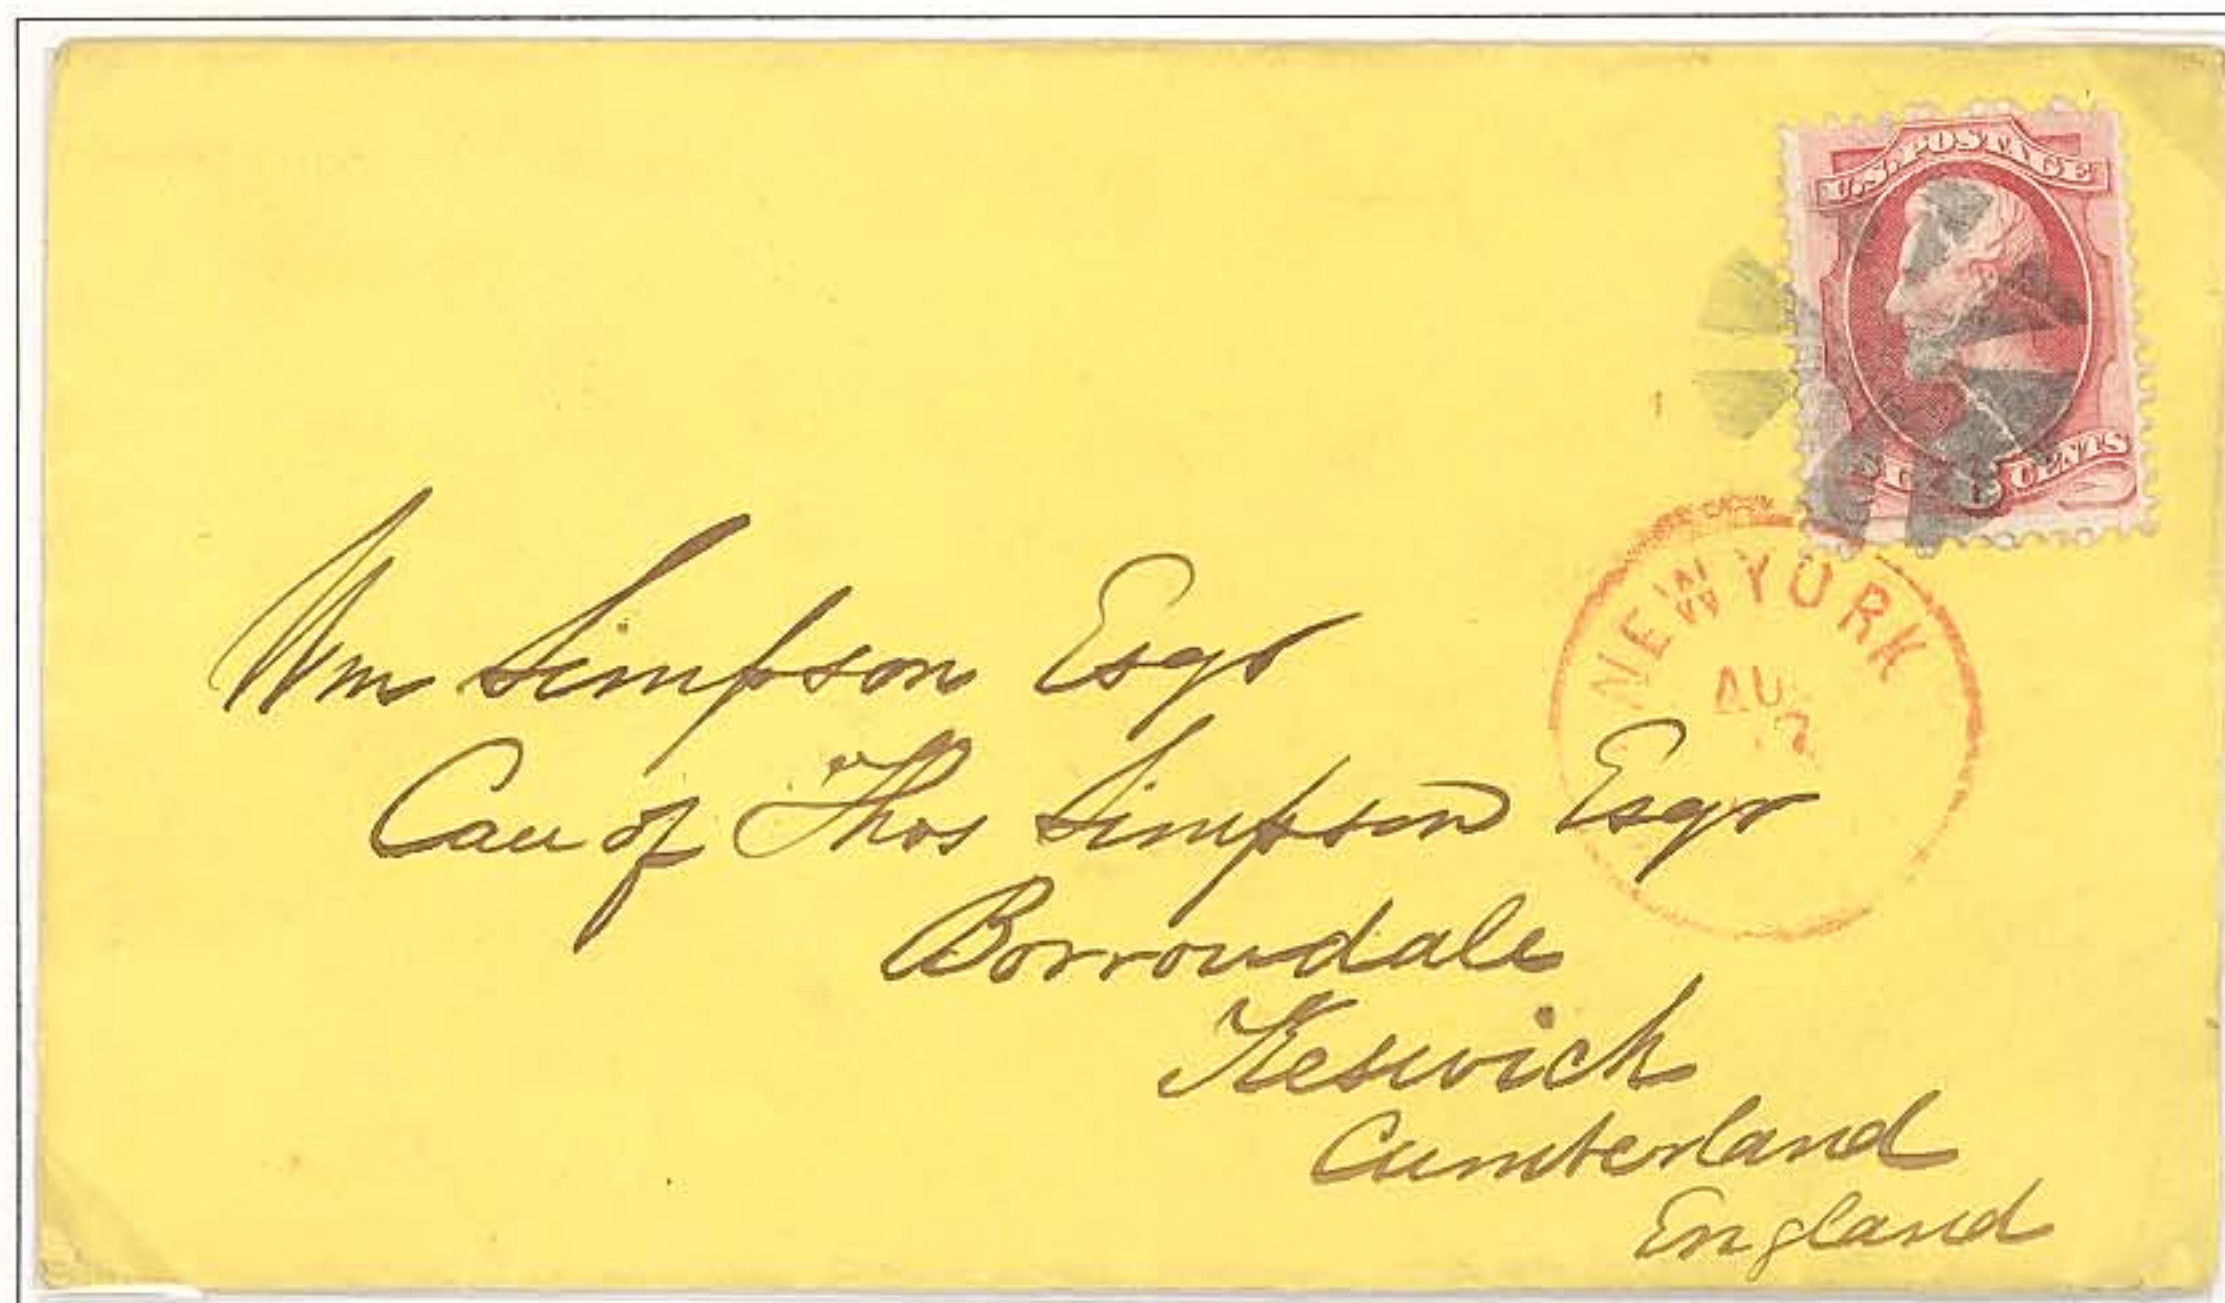 U.S. POSTAGE
CENTS
NEW YORK
AU
Wm Simpson Esqr
Care of Thos Simpson Esqr
Borrowdale
Keswick
Cumberland
England